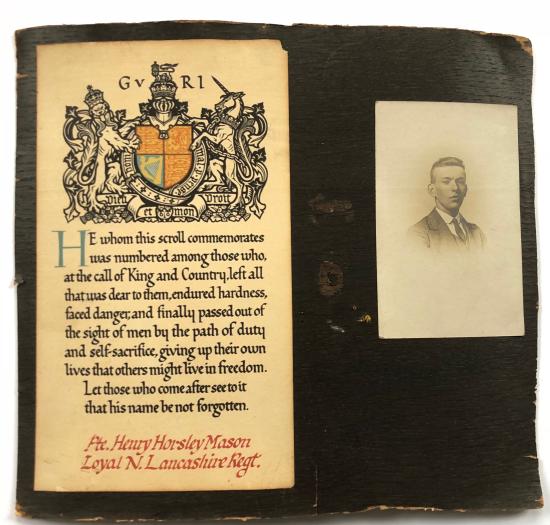 G V R I
HONI SOIT QUI MAL Y PENSE
Dieu et mon Droit
HE whom this scroll commemorates
was numbered among those who,
at the call of King and Country, left all
that was dear to them, endured hardness,
faced danger, and finally passed out of
the sight of men by the path of duty
and self-sacrifice, giving up their own
lives that others might live in freedom.
Let those who come after see to it
that his name be not forgotten.
Pte. Henry Horsley Mason
Loyal N. Lancashire Regt.